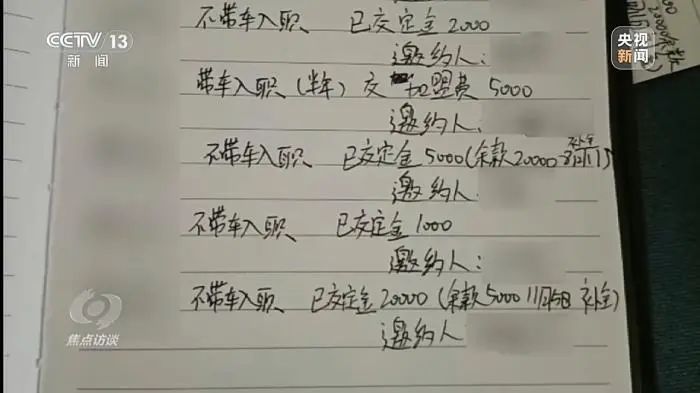 CCTV 13
新闻
央视
新闻
不带车入职、 已交定金 2000
邀约人:
带车入职 (半年) 交 加盟费 5000
邀约人:
不带车入职、 已交定金 5000(余款20000
补全
邀约人:
不带车入职、 已交定金 1000
邀约人:
不带车入职、 已交定金 20000 (余款5000 11月5日 补全)
邀约人
焦点访谈